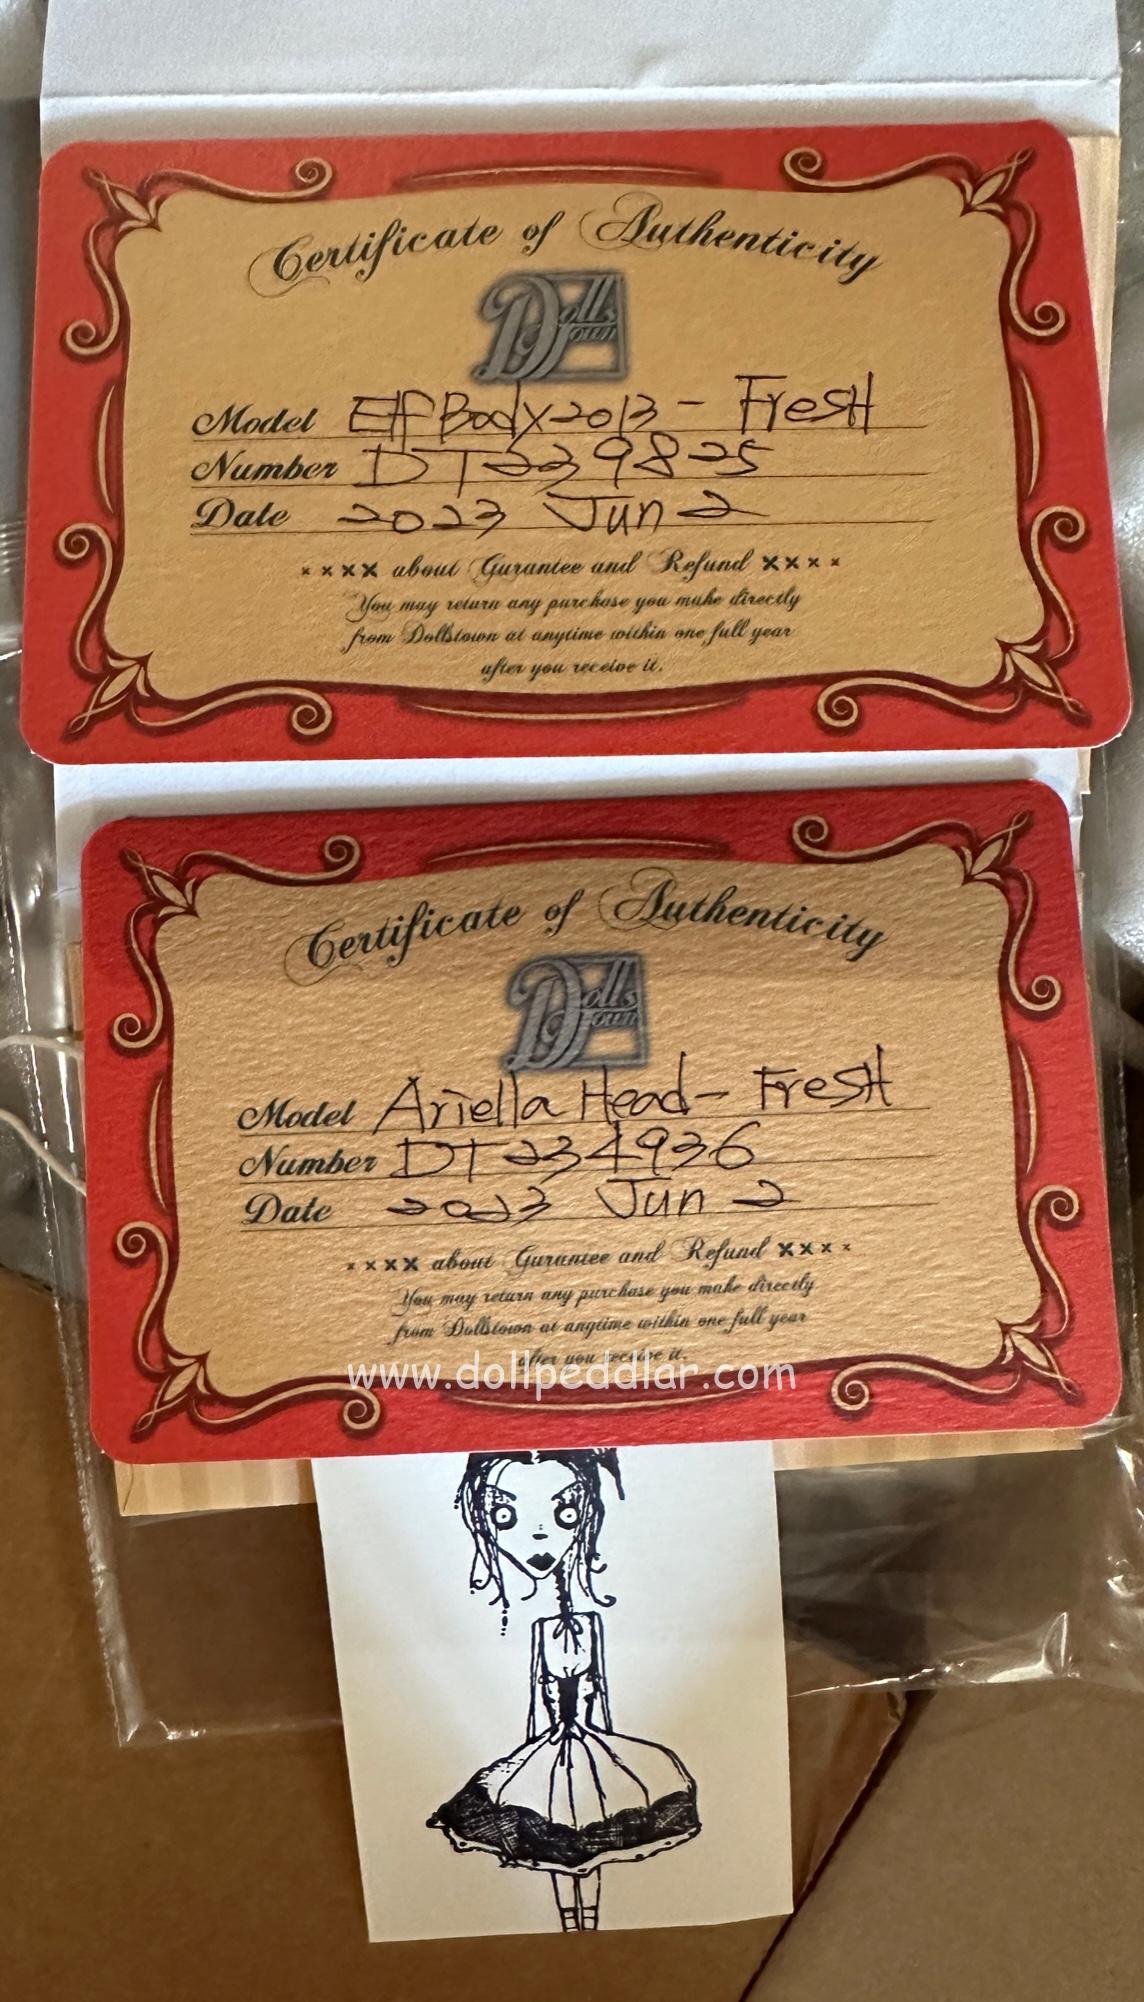 Certificate of Authenticity
Dolls Town
Model Elf Body 2013 - Fresh
Number DT239825
Date 2023 Jun 2
×××× about Gurantee and Refund ××××
You may return any purchase you make directly
from Dollstown at anytime within one full year
after you receive it.
Certificate of Authenticity
Dolls Town
Model Ariella Head - Fresh
Number DT234936
Date 2023 Jun 2
×××× about Gurantee and Refund ××××
You may return any purchase you make directly
from Dollstown at anytime within one full year
after you receive it.
www.dollpeddlar.com